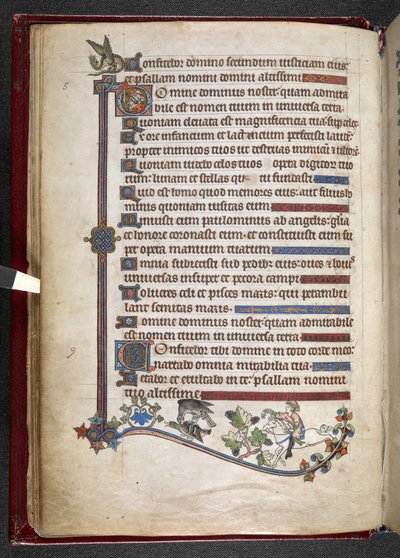 Confitebor domino secundum iusticiam eius:
et psallam nomini domini altissimi
8
Domine dominus noster: quam admira
bile est nomen tuum in uniuersa terra.
Quoniam eleuata est magnificencia tua: sup celos.
Ex ore infancium et lactencium perfecisti laude:
propter inimicos tuos ut destruas inimicu et ultore.
Quoniam uidebo celos tuos opera digitor tuo
rum: lunam et stellas que tu fundasti
Quid est homo quod memores eius: aut filius ho
minis quoniam uisitas eum
Minuisti eum paulominus ab angelis: gloria
et honore coronasti eum: et constituisti eum su
per opera manuum tuarum
Omnia subiecisti sub pedib eius: oues et boues
uniuersas insuper et pecora campi
Uolucres celi et pisces maris: qui perambu
lant semitas maris.
Domine dominus noster: quam admirabile
est nomen tuum in uniuersa terra.
9
Confitebor tibi domine in toto corde meo:
narrabo omnia mirabilia tua.
Letabor et exultabo in te: psallam nomini
tuo altissime